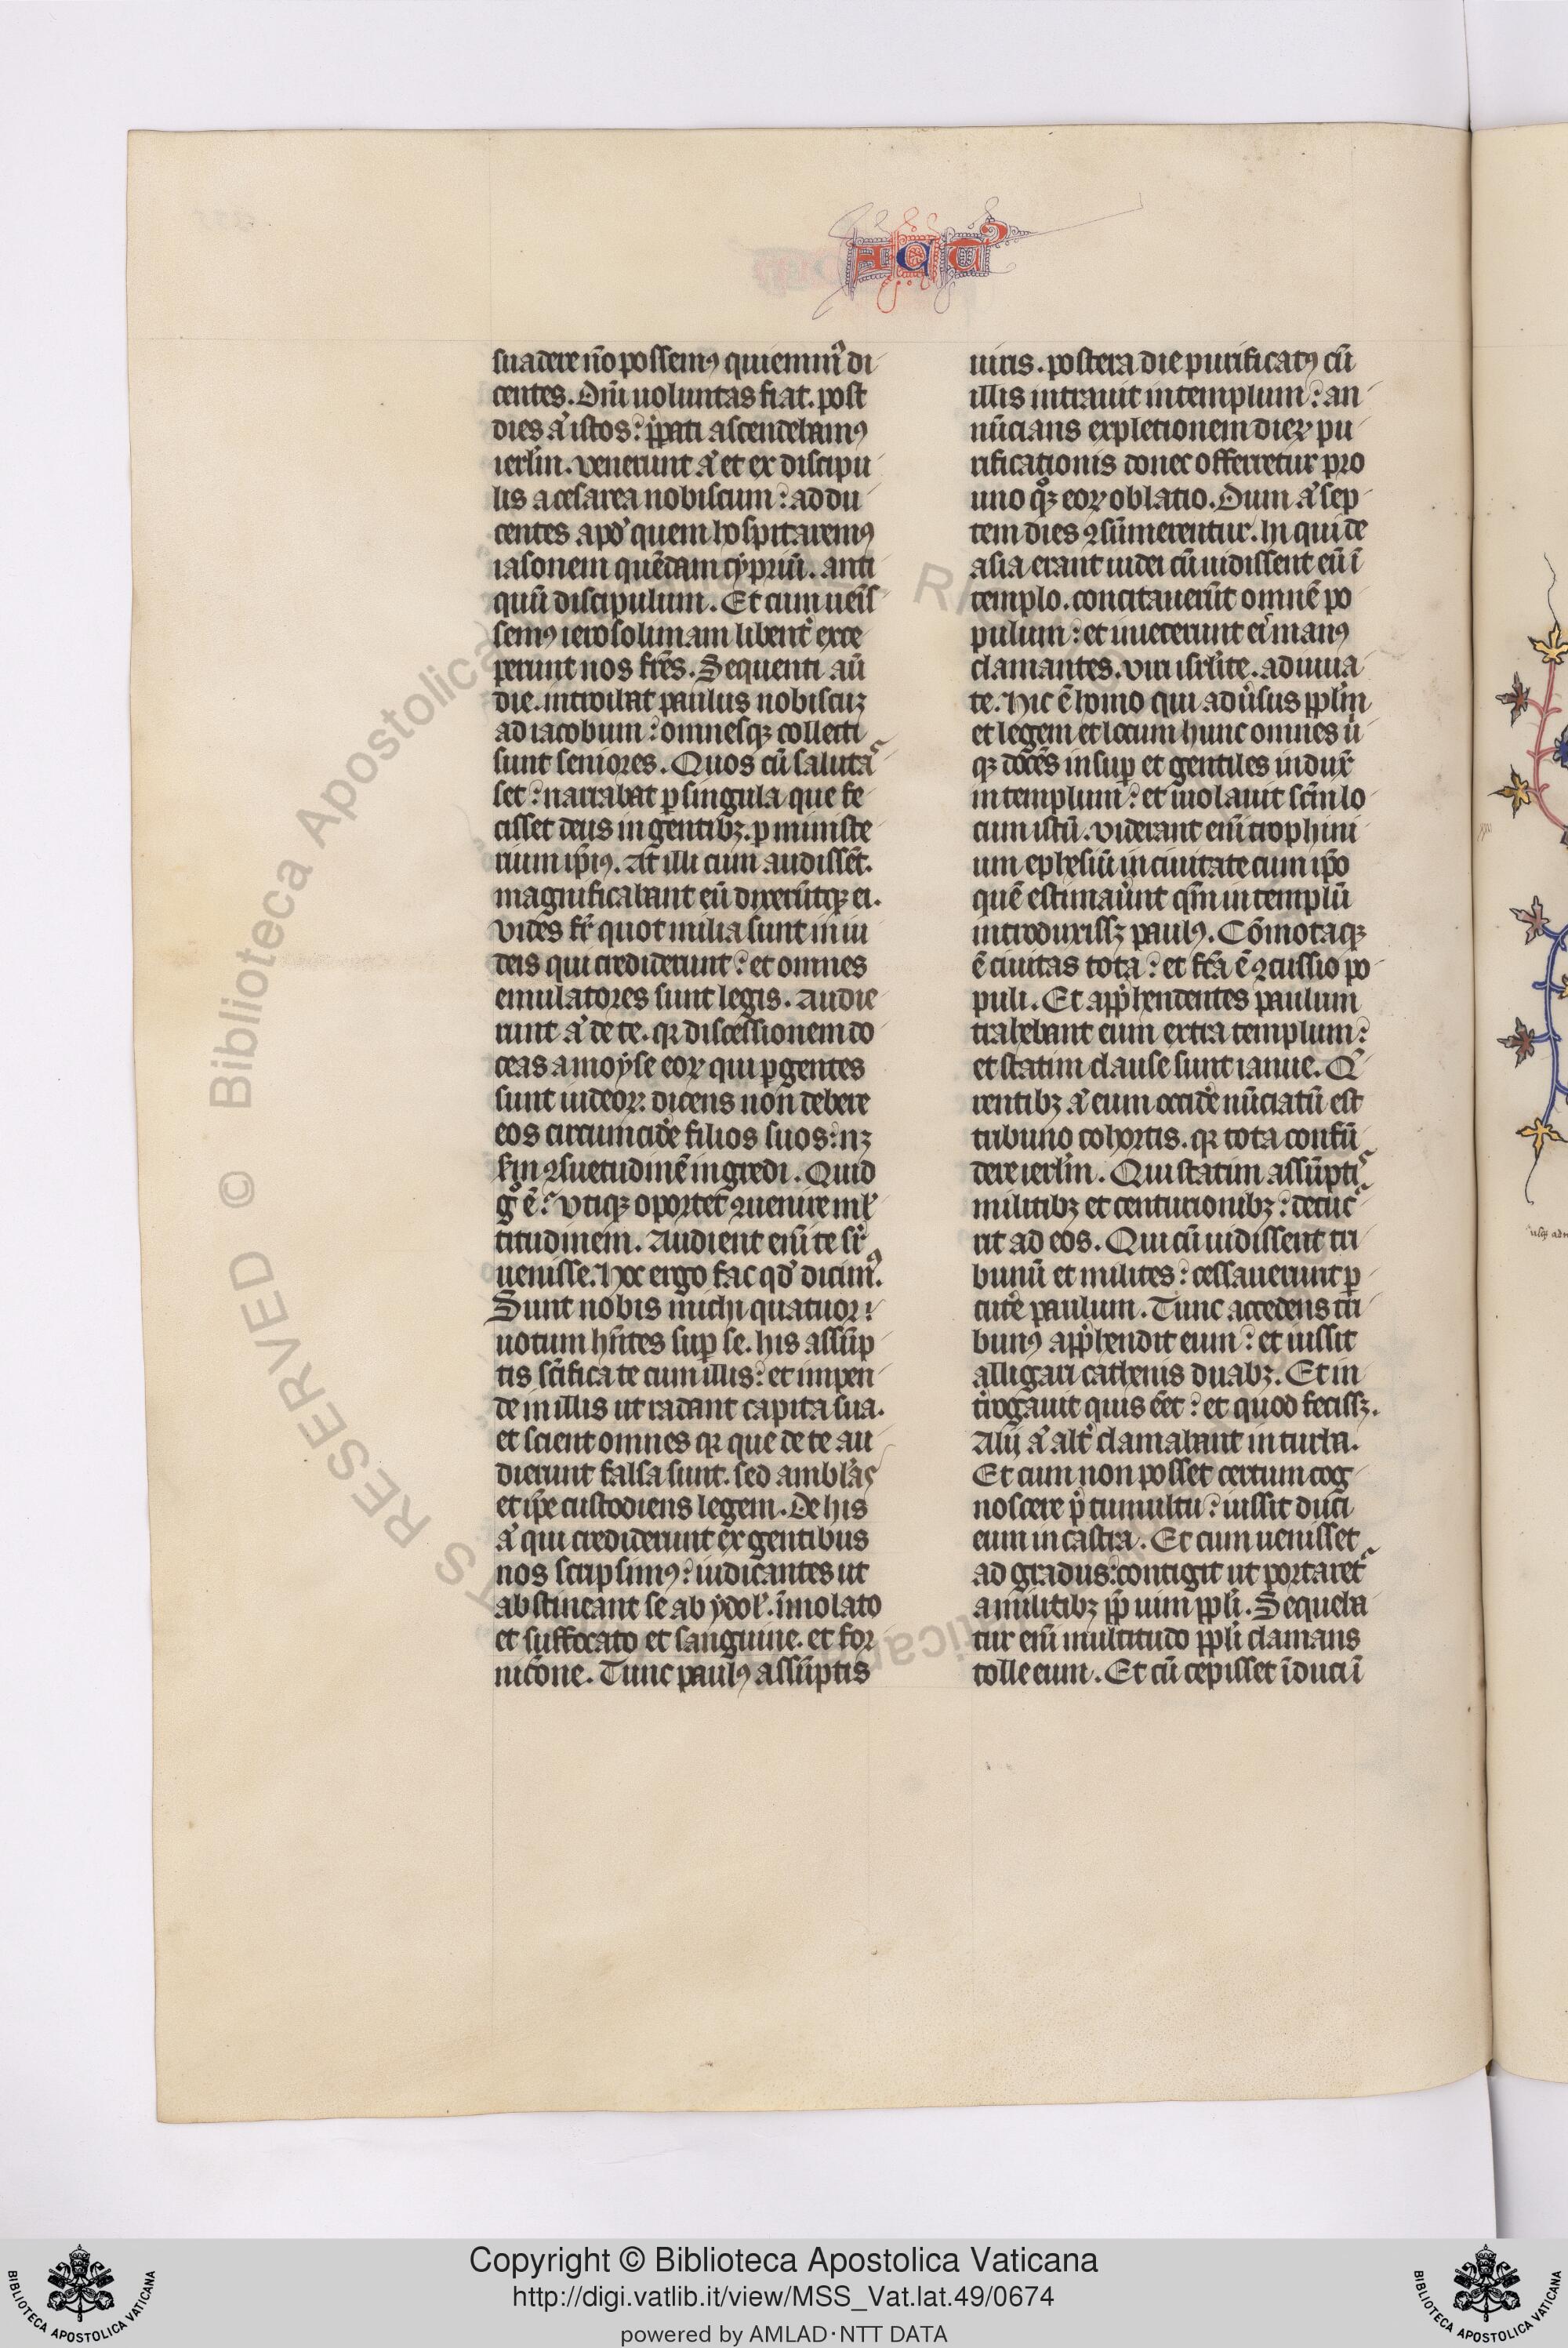 Actꝰ
suadere nō possemꝰ quieuimꝰ di
centes. Dn̄i uoluntas fiat. post
dies aͧ istos: p̄pati ascendebamꝰ
ierl̄m. venerunt aͧ et ex discipu
lis a cesarea nobiscum: addu
centes apd̓ quem hospitaremꝰ
iasonem quēdam cypriū. anti
quū discipulum. Et cum ueīs
semꝰ ierosolimam libent̓ exce
perunt nos fr̄es. Sequenti aū
die. introibat paulus nobiscuꝫ
ad iacobum: omnesqꝫ collecti
sunt seniores. Quos cū salutaͨ
set: narrabat ꝑ singula que fe
cisset deus in gentibꝫ. ꝑ ministe
rium ip̄iꝰ. At illi cum audissēt.
magnificabant eū dixerūtqꝫ ei.
vides fr̄ quot milia sunt in iu
deis qui crediderunt: et omnes
emulatores sunt legis. Audie
runt aͧ de te. qꝛ discessionem do
ceas a moyse eoꝝ qui ꝑ gentes
sunt iudeoꝝ. dicens non debere
eos circumcide̓ filios suos: nꝫ
sc̄m ꝯsuetudinē ingredi. Quid
gͦ ē: vtiqꝫ oportet ꝯuenire ml̓
titudinem. Audient eni̅ te sr̓
uenisse. Hoc ergo fac qd̓ dicimꝰ.
Sunt nobis michi quatuor:
uotum hn̄tes suꝑ se. his assūp
tis sc̄ifica te cum illis: et impen
de in illis ut radant capita sua.
et scient omnes qꝛ que de te au
dierunt falsa sunt. sed ambl̓as
et ip̄e custodiens legem. De his
aͧ qui crediderunt ex gentibus
nos scripsimꝰ: iudicantes ut
abstineant se ab ydol̓. īmolato
et suffocato et sanguine. et for
nicōne. Tunc paulꝰ assūptis
uiris. postera die purificatꝰ cū
illis intrauit in templum: an
nūcians expletionem dieꝝ pu
rificationis donec offerretur pro
uno qͦꝫ eoꝝ oblatio. Dum aͧ sep
tem dies ꝯsūmerentur. hi qui de
asia erant iudei cū uidissent eū ī
templo. concitauerūt omnē po
pulum: et iniecerunt ei̓ manꝰ
clamantes. viri isrl̓ite. adiuua
te. Hic ē homo qui adu̓sus ppl̄m
et legem et locum hunc omnes u
qꝫ docēs insuꝑ et gentiles indux̓
in templum: et uiolauit sc̄m lo
cum istū. viderant enī trophimi
um ephesiū in ciuitate cum ip̄o
quē estimauͤnt qm̄ in templū
introduxissꝫ paulꝰ. Cōmotaqꝫ
ē ciuitas tota: et fc̄a ē ꝯcursio po
puli. Et app̄hendentes paulum
trahebant eum extra templum:
et statim clause sunt ianue. Q̓
rentibꝫ aͧ eum occide̓ nūciatū est
tribuno cohortis. qꝛ tota confū
dere ierl̄m. Qui statim assūptiͨ
militibꝫ et centurionibꝫ: decucͬ
rit ad eos. Qui cū uidissent tri
bunū et milites: cessauerunt ꝑ
cute̓ paulum. Tunc accedens tri
bunꝰ app̄hendit eum: et iussit
alligari cathenis duabꝫ. Et in
t̓rogauit quis eēt: et quod fecissꝫ.
Alij aͧ alt̓ clamabant in turba.
Et cum non posset certum cog
noscere p̄ tumultu: iussit duci
eum in castra. Et cum uenisset
ad gradus: contigit ut portaretͬ
a militibꝫ pp̄ uim ppl̓i. Sequeba
tur eni̅ multitudo ppl̓i clamans
tolle eum. Et cū cepisset īduci ī
© Biblioteca Apostolica Vaticana
Copyright © Biblioteca Apostolica Vaticana
http://digi.vatlib.it/view/MSS_Vat.lat.49/0674
powered by AMLAD·NTT DATA
BIBLIOTECA APOSTOLICA VATICANA
BIBLIOTECA APOSTOLICA VATICANA